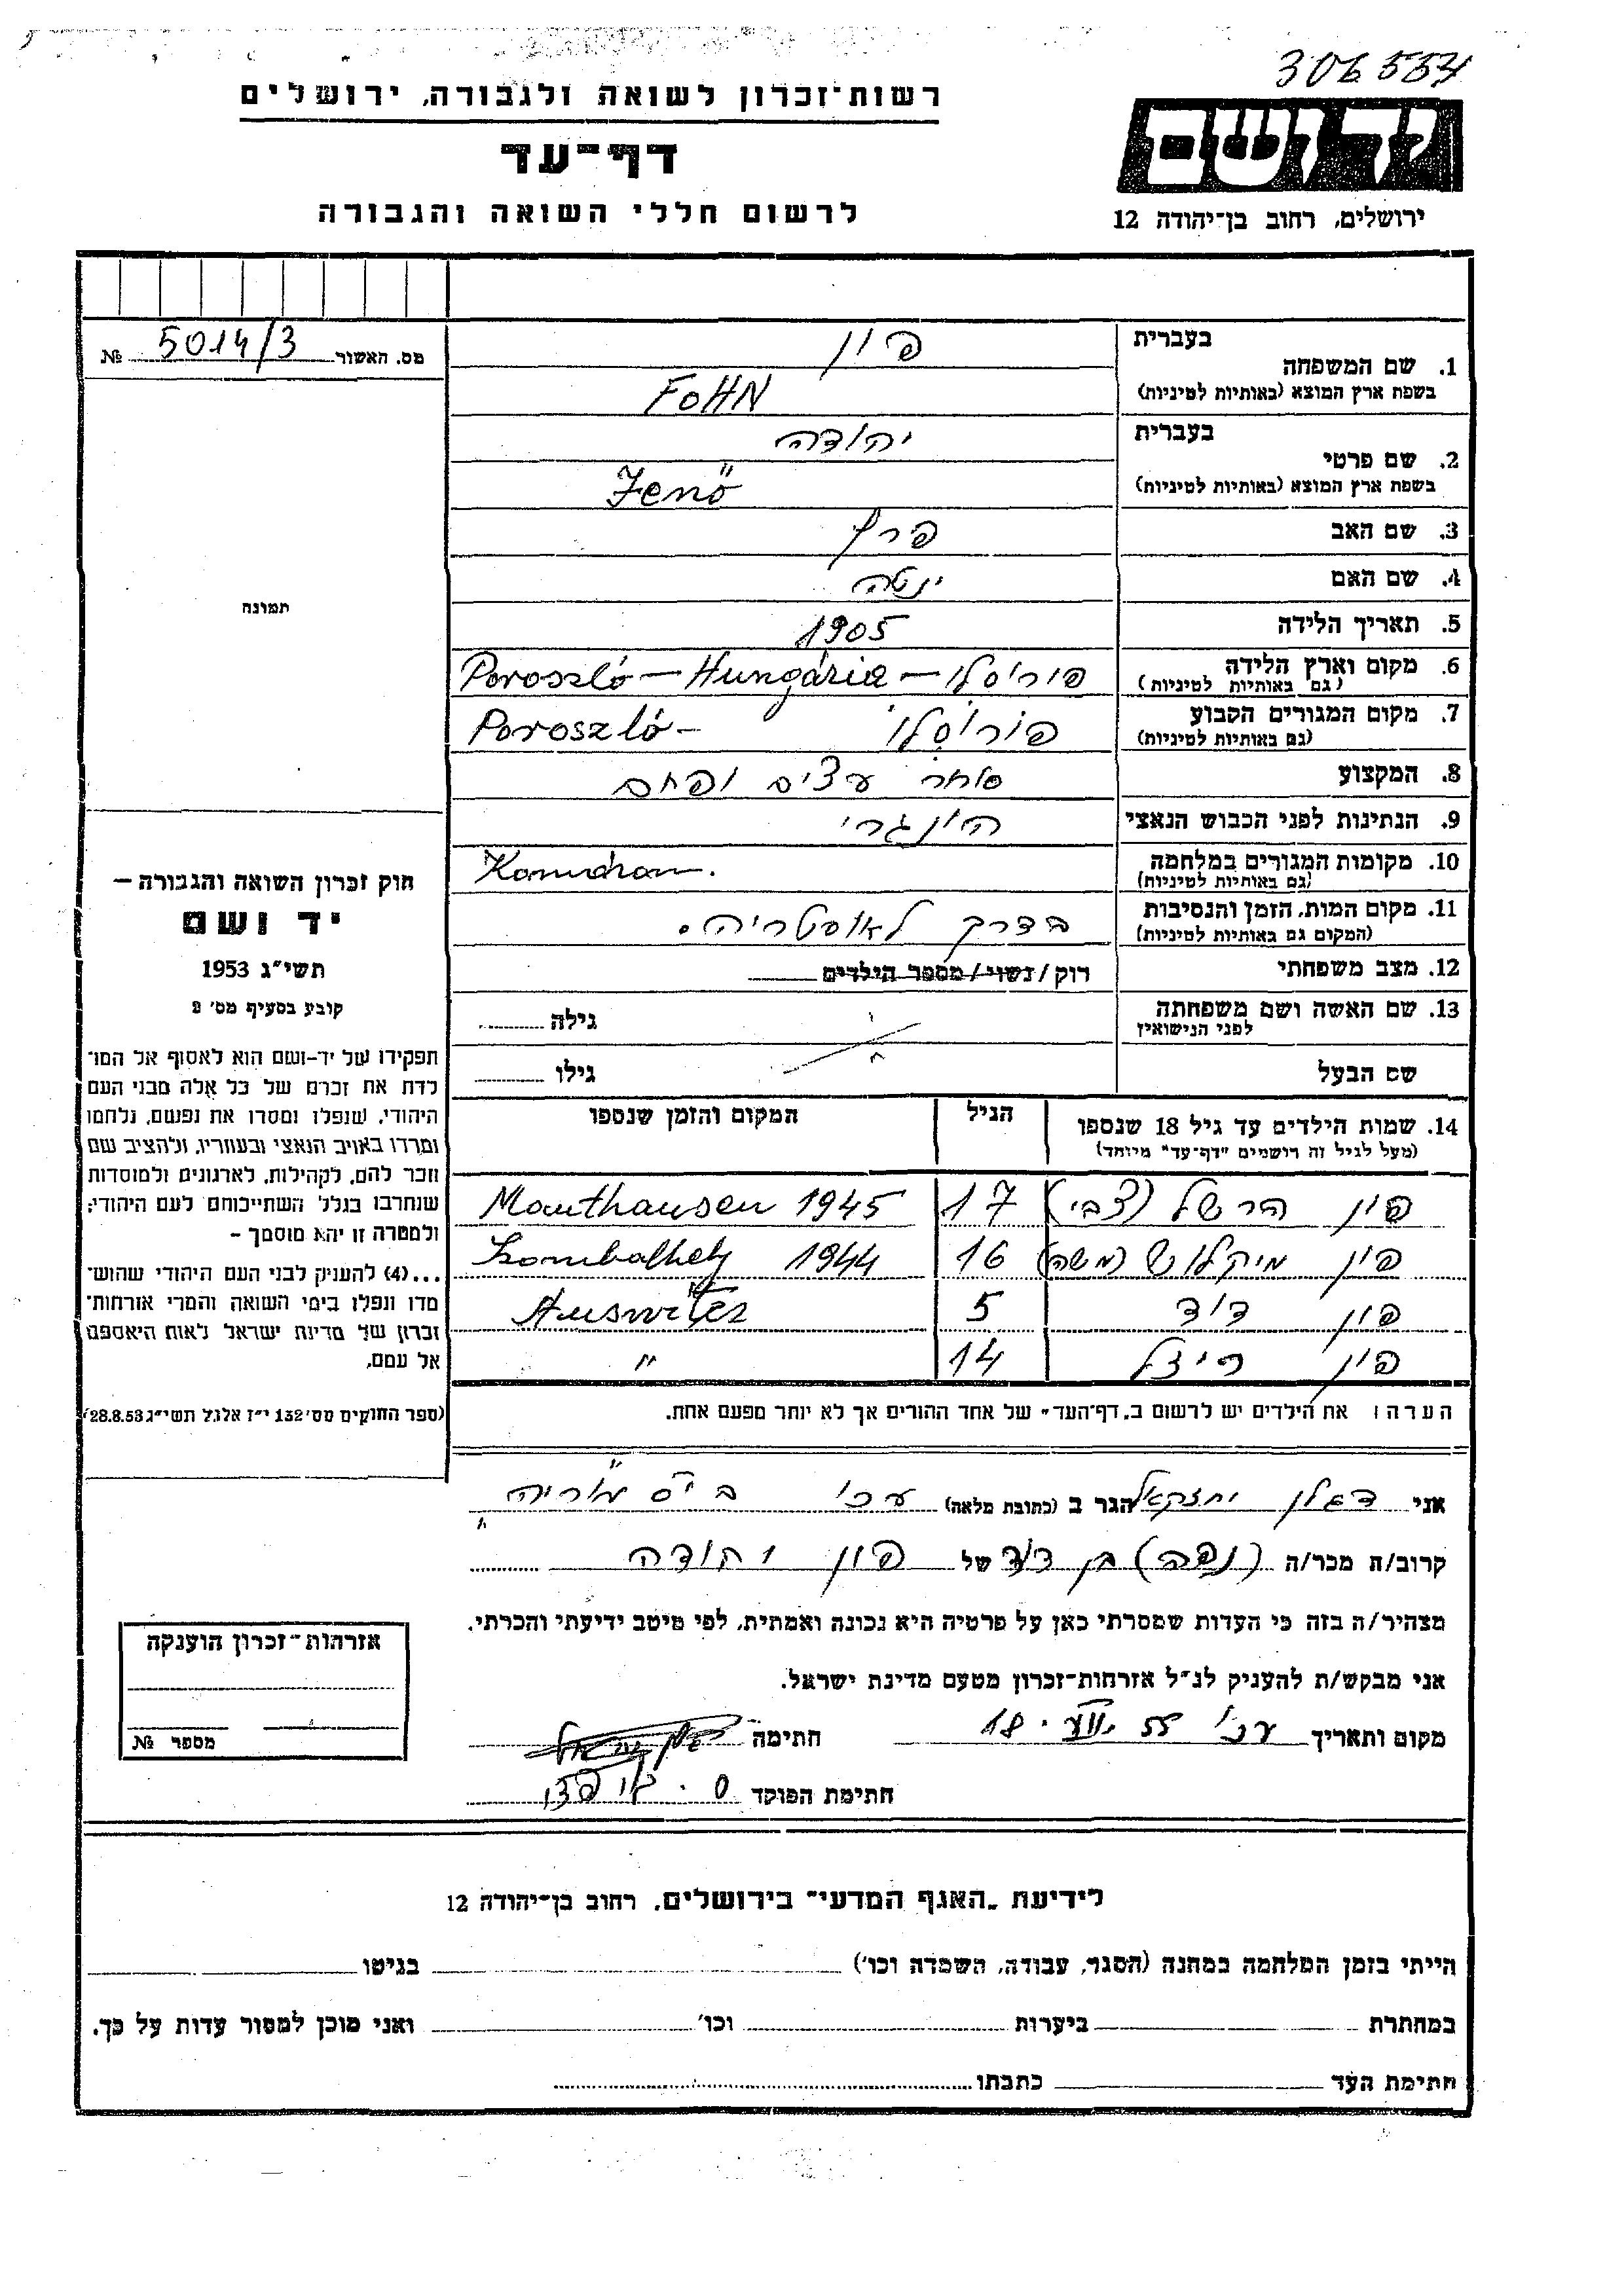 306554
רשות-זכרון לשואה ולגבורה, ירושלים
דף-עד
לרשום חללי השואה והגבורה
יד ושם
ירושלים, רחוב בן-יהודה 12
מס. האשור 5014/3 №
בעברית
1. שם המשפחה פון
בשפת ארץ המוצא (באותיות לטיניות) FOHN
בעברית
2. שם פרטי יהודה
בשפת ארץ המוצא (באותיות לטיניות) Jenő
3. שם האב פרץ
4. שם האם ינטה
5. תאריך הלידה 1905
6. מקום וארץ הלידה פורוסלו – Poroszló – Hungária
(גם באותיות לטיניות)
7. מקום המגורים הקבוע פורוסלו – Poroszló
(גם באותיות לטיניות)
8. המקצוע סוחר עצים ופחם
9. הנתינות לפני הכבוש הנאצי הונגרי
10. מקומות המגורים במלחמה
(גם באותיות לטיניות)
11. מקום המות, הזמן והנסיבות בדרך לאוסטריה.
(המקום גם באותיות לטיניות)
12. מצב משפחתי רוק/נשוי/מספר הילדים
13. שם האשה ושם משפחתה גילה
לפני הנישואין
שם הבעל גילו
14. שמות הילדים עד גיל 18 שנספו הגיל המקום והזמן שנספו
(מעל לגיל זה רושמים "דף-עד" מיוחד)
פון הרשל (צבי) 17 Mauthausen 1945
פון מיקלוש (משה) 16 Szombathely 1944
פון דוד 5 Auswitcz
פון 14 "
הערה: את הילדים יש לרשום ב"דף-העד" של אחד ההורים אך לא יותר מפעם אחת.
תמונה
חוק זכרון השואה והגבורה –
יד ושם
תשי"ג 1953
קובע בסעיף מס' 2
תפקידו של יד-ושם הוא לאסוף אל המו-
לדת את זכרם של כל אלה מבני העם
היהודי, שנפלו ומסרו את נפשם, נלחמו
ומרדו באויב הנאצי ובעוזריו, ולהציב שם
וזכר להם, לקהילות, לארגונים ולמוסדות
שנחרבו בגלל השתייכותם לעם היהודי;
ולמטרה זו יהא מוסמך –
...(4) להעניק לבני העם היהודי שהוש-
מדו ונפלו בימי השואה והמרי אזרחות-
זכרון של מדינת ישראל לאות היאספם
אל עמם.
(ספר החוקים מס' 132 י"ז אלול תשי"ג 28.8.53)
אני דגלן יחזקאל הגר ב (כתובת מלאה) עכו
קרוב/ת מכר/ה בן דוד של פון יהודה
מצהיר/ה בזה כי העדות שמסרתי כאן על פרטיה היא נכונה ואמתית, לפי מיטב ידיעתי והכרתי.
אני מבקש/ת להעניק לנ"ל אזרחות-זכרון מטעם מדינת ישראל.
מקום ותאריך עכו 18.VIII.55 חתימה
חתימת הפוקד
אזרחות-זכרון הוענקה
מספר №
לידיעת "האגף המדעי" בירושלים, רחוב בן-יהודה 12
הייתי בזמן המלחמה במחנה (הסגר, עבודה, השמדה וכו') בגיטו
במחתרת ביערות וכו' ואני מוכן למסור עדות על כך.
חתימת העד כתבתו